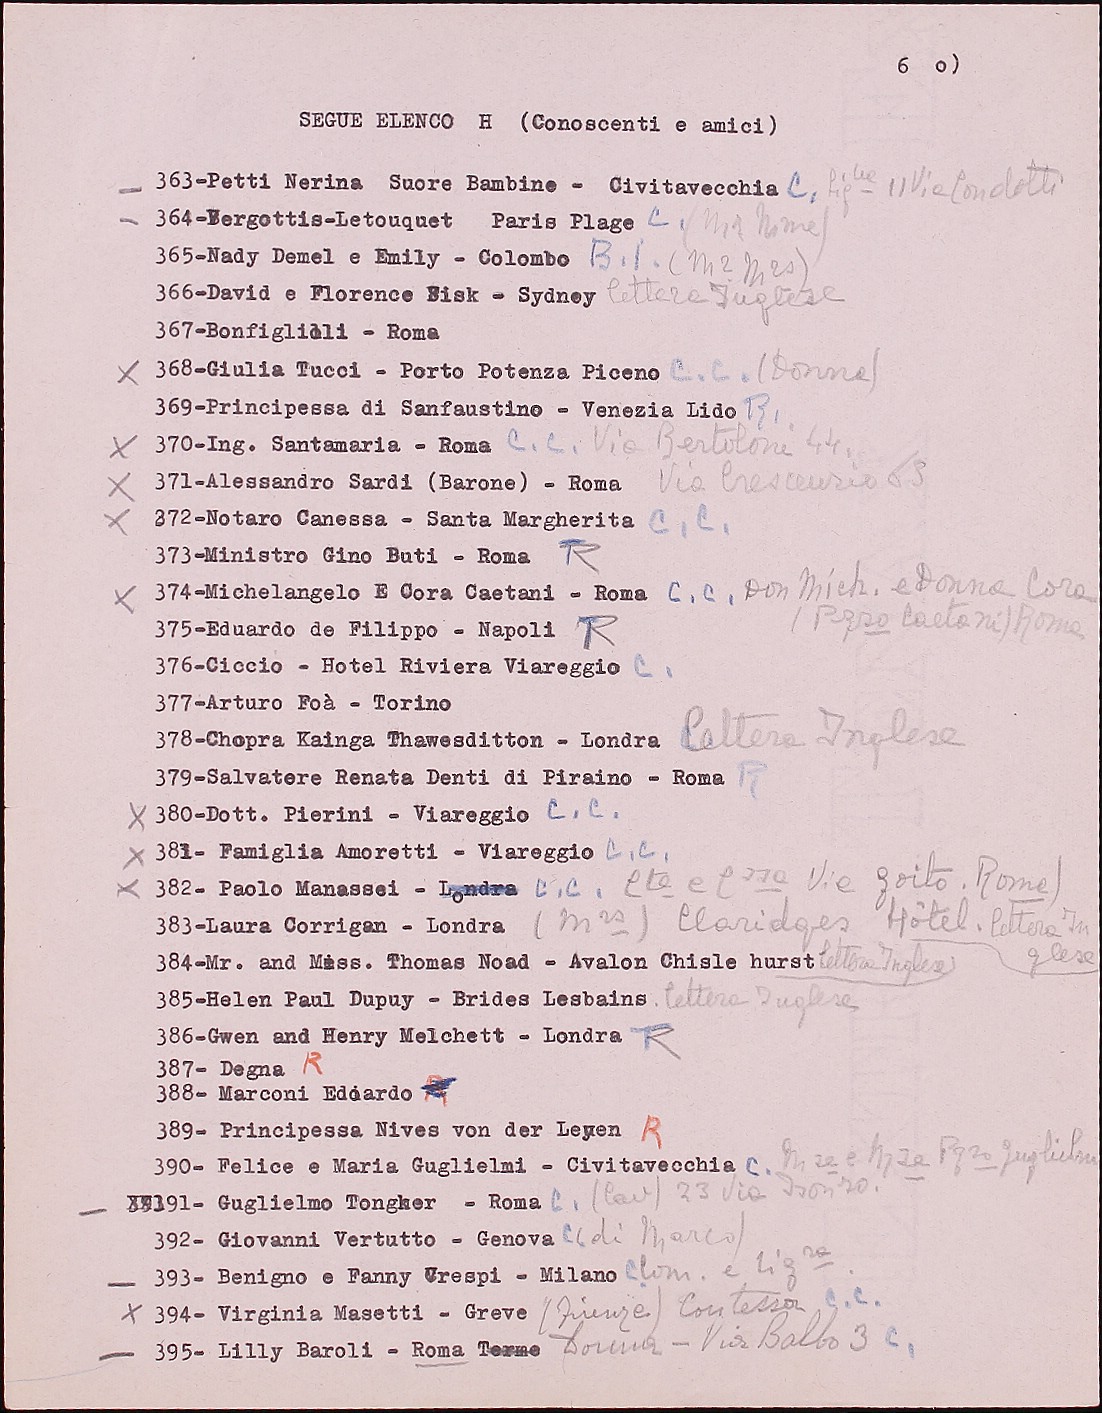 6 o)
SEGUE ELENCO H (Conoscenti e amici)
363-Petti Nerina Suore Bambine - Civitavecchia C. 11 Via Condotti
364-Bergottis-Letouquet Paris Plage C. (Mr Mme)
365-Nady Demel e Emily - Colombo B.I. (Mr Mrs)
366-David e Florence Fisk - Sydney lettera Inglese
367-Bonfiglioli - Roma
368-Giulia Tucci - Porto Potenza Piceno C.C. (Donna)
369-Principessa di Sanfaustino - Venezia Lido R.
370-Ing. Santamaria - Roma C.C. Via Bertoloni 44.
371-Alessandro Sardi (Barone) - Roma Via Crescenzio 63
372-Notaro Canessa - Santa Margherita C.C.
373-Ministro Gino Buti - Roma R
374-Michelangelo E Cora Caetani - Roma C.C. Don Mich. e Donna Cora
(Pzzo Caetani) Roma
375-Eduardo de Filippo - Napoli R
376-Ciccio - Hotel Riviera Viareggio C.
377-Arturo Foà - Torino
378-Chopra Kainga Thawesditton - Londra Lettera Inglese
379-Salvatore Renata Denti di Piraino - Roma R
380-Dott. Pierini - Viareggio C.C.
381- Famiglia Amoretti - Viareggio C.C.
382- Paolo Manassei - Londra C.C. Cte e Cssa Via Goito. Roma)
383-Laura Corrigan - Londra (Mrs) Claridges Hôtel. lettera In
glese
384-Mr. and Miss. Thomas Noad - Avalon Chisle hurst lettera Inglese
385-Helen Paul Dupuy - Brides Lesbains. lettera Inglese
386-Gwen and Henry Melchett - Londra R
387- Degna R
388- Marconi Edoardo R
389- Principessa Nives von der Leyen R
390- Felice e Maria Guglielmi - Civitavecchia C. Mse e Msa Pzzo Guglielmi
391- Guglielmo Tongker - Roma C. (Cav) 23 Via Isonzo.
392- Giovanni Vertutto - Genova C (di Marco)
393- Benigno e Fanny Crespi - Milano C Com. e Sigra.
394- Virginia Masetti - Greve (Firenze) Contessa C.C.
395- Lilly Baroli - Roma Terme Donna - Via Balbo 3 C.